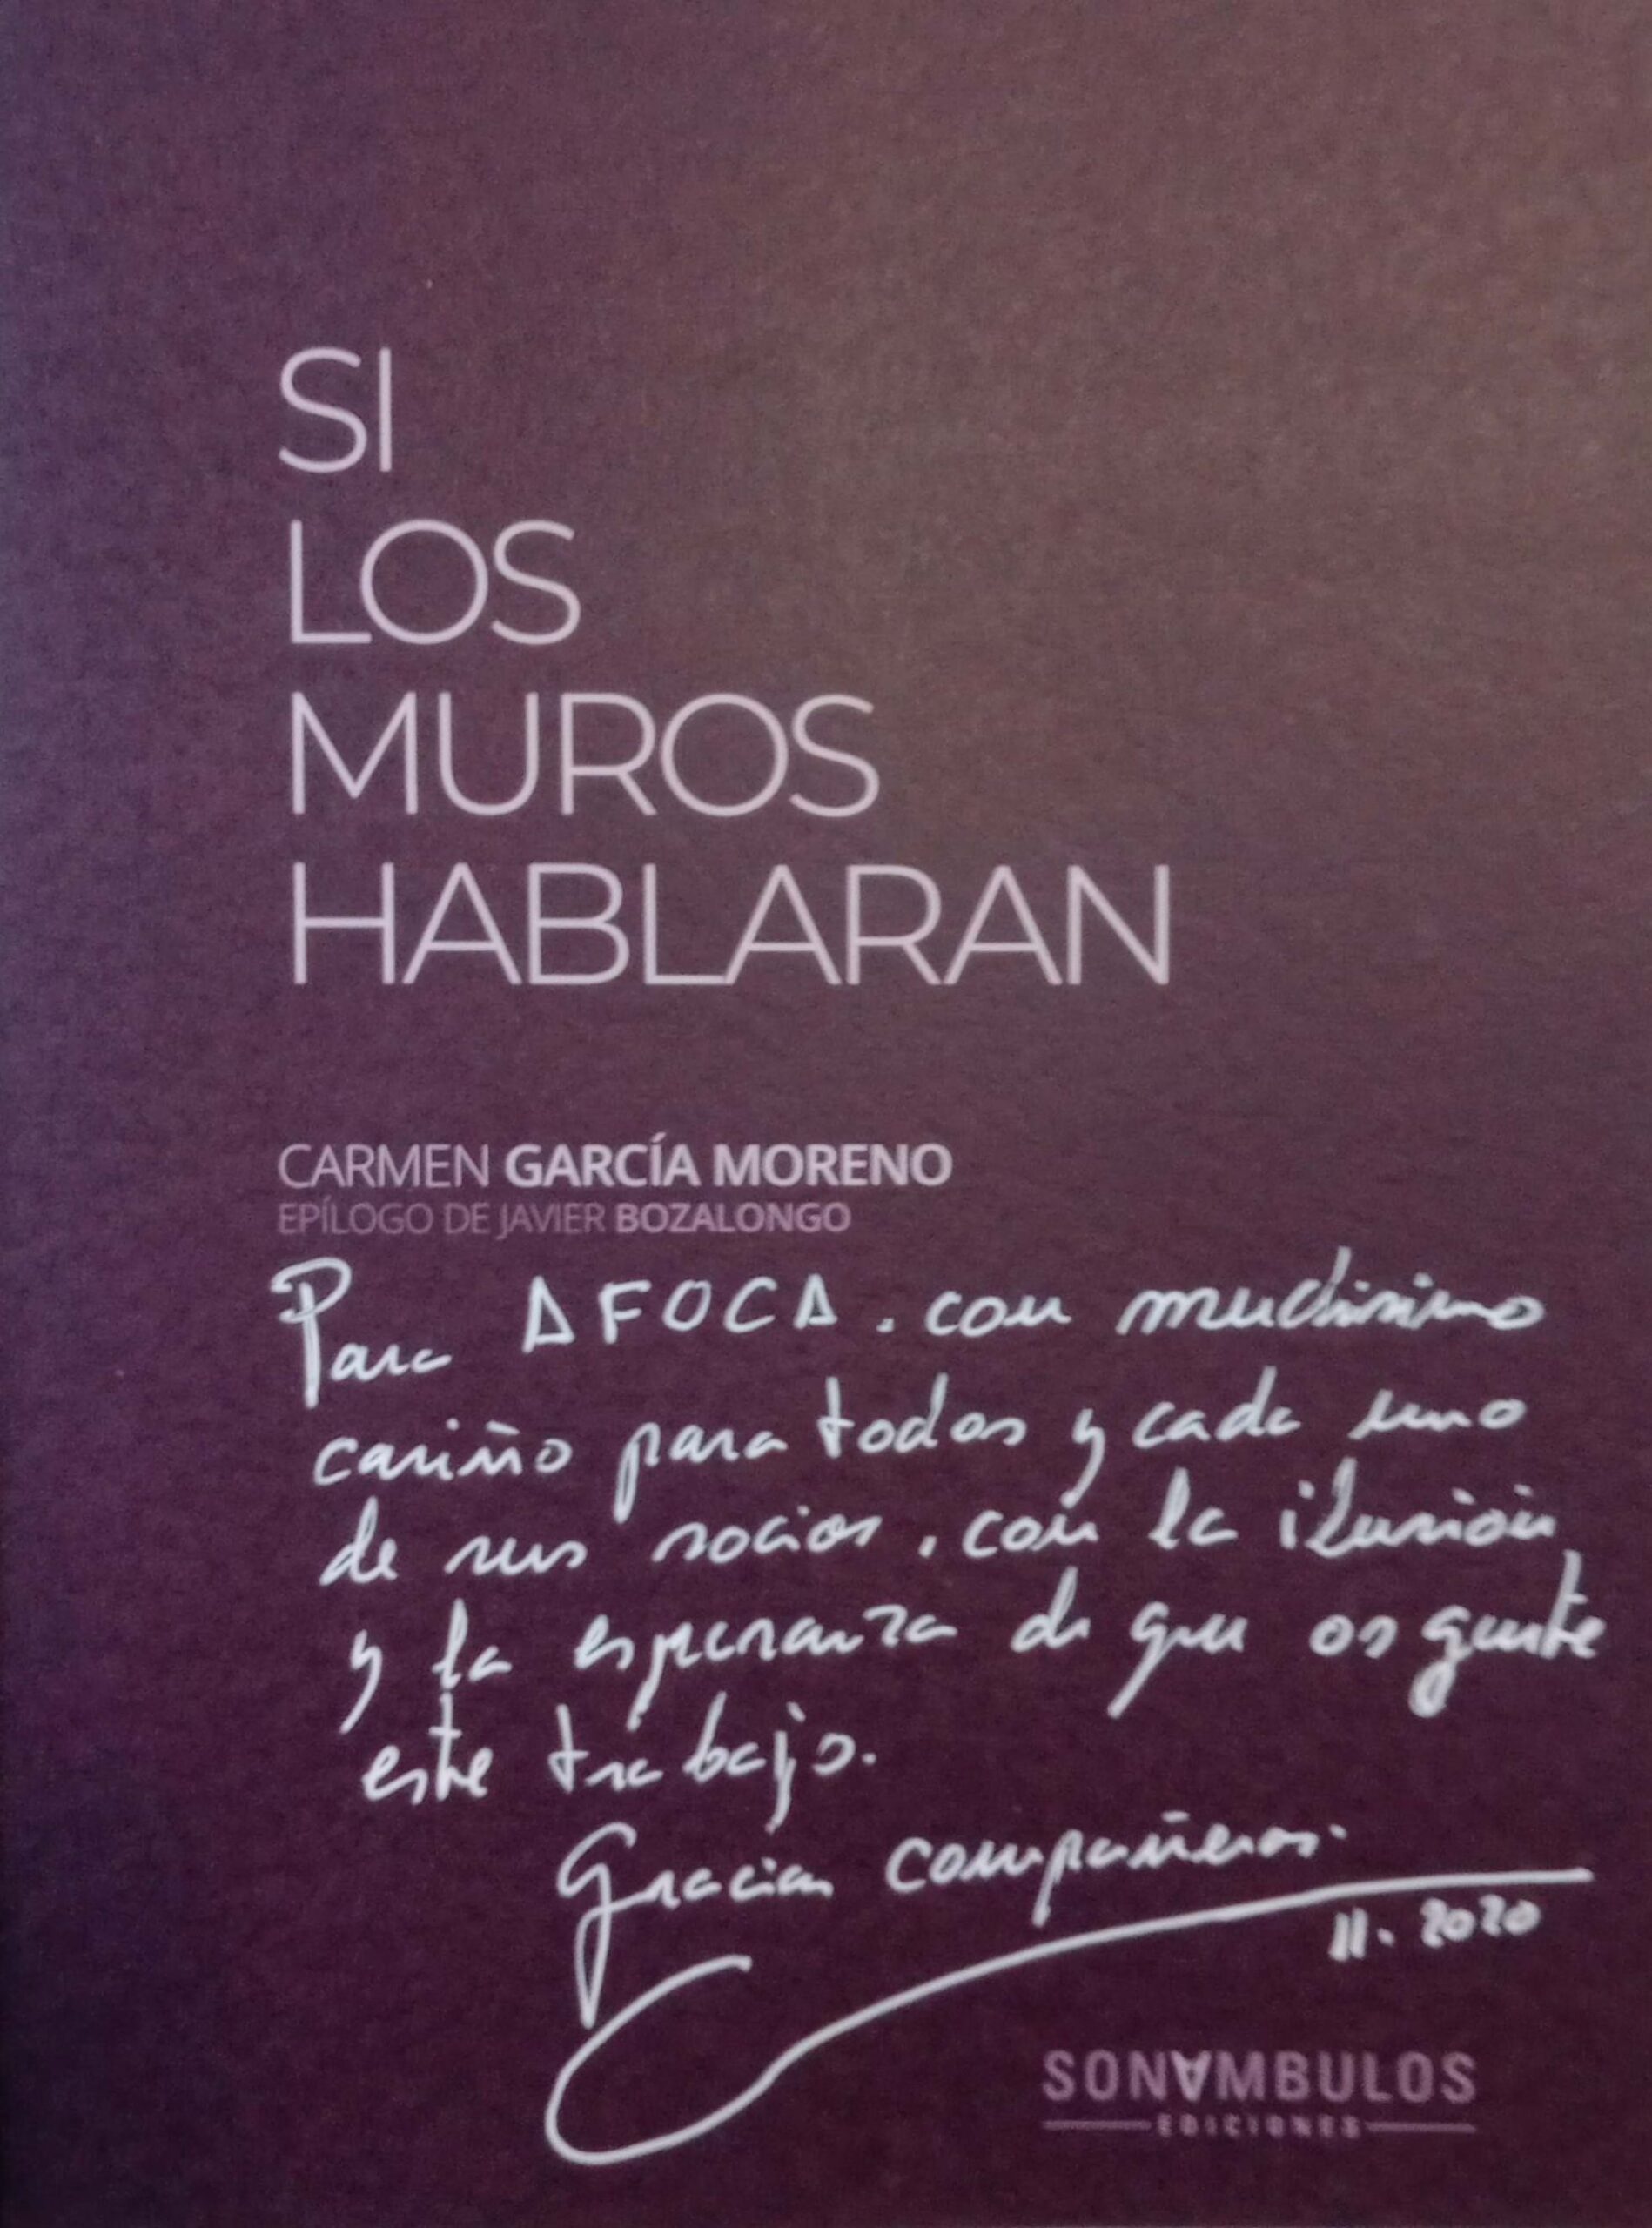 SI
LOS
MUROS
HABLARAN
CARMEN GARCÍA MORENO
EPÍLOGO DE JAVIER BOZALONGO
Para AFOCA. con muchisimo
cariño para todos y cada uno
de sus socios, con la ilusión
y la esperanza de que os guste
este trabajo.
Gracias compañeros.
11. 2020
SONÁMBULOS
EDICIONES